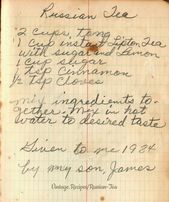 Russian Tea
2 cups tang
1 cup instant Lipton Tea
with sugar and Lemon
1 cup sugar
1/2 tsp Cinnamon
1/2 tsp Cloves
mix ingredients to-
gether. Mix in hot
water to desired taste
Given to me 1984
by my son, James
Vintage.Recipes/Russian-Tea